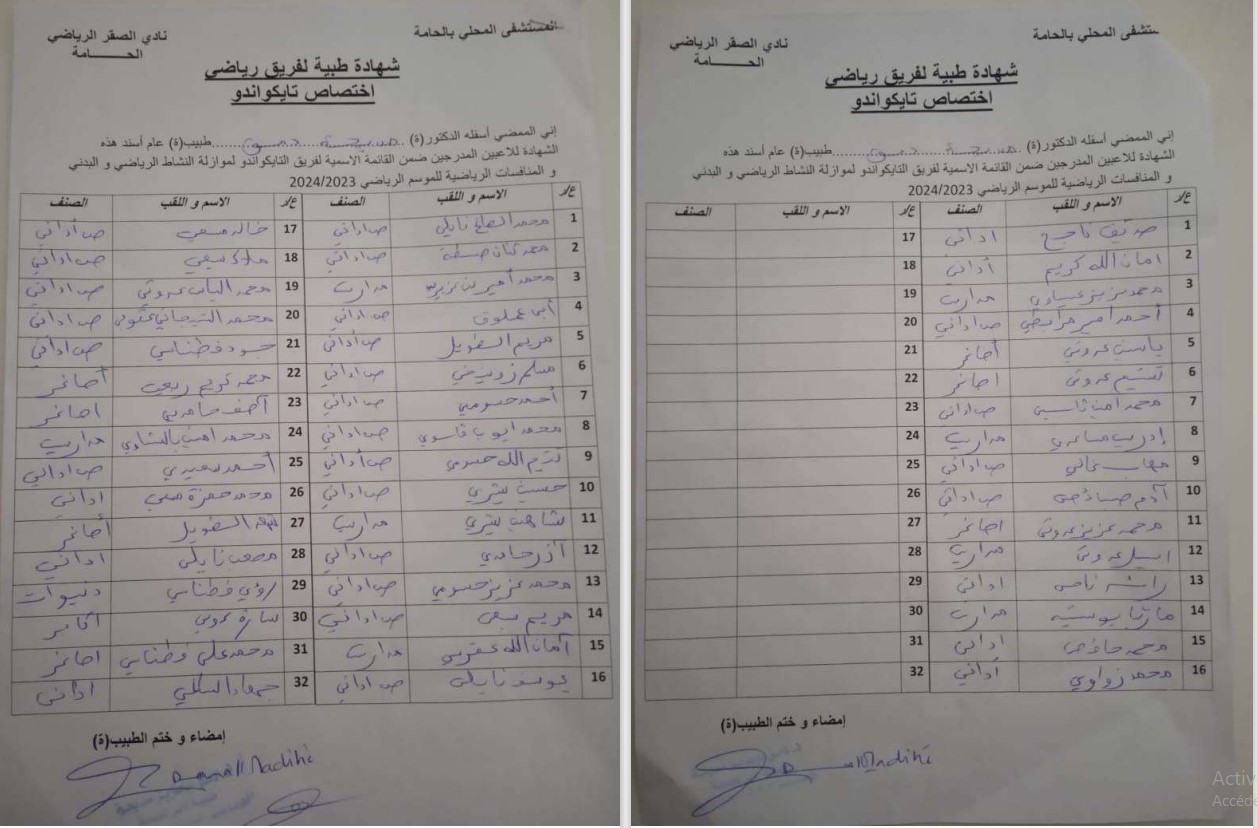 المستشفى المحلي بالحامة
نادي الصقر الرياضي
الحـــــامة
شهادة طبية لفريق رياضي
اختصاص تايكواندو
إني الممضي أسفله الدكتور(ة) مديحة دمق طبيب(ة) عام أسند هذه
الشهادة للاعبين المدرجين ضمن القائمة الاسمية لفريق التايكواندو لموازلة النشاط الرياضي و البدني
و المنافسات الرياضية للموسم الرياضي 2024/2023
ع/ر الاسم و اللقب الصنف ع/ر الاسم و اللقب الصنف
1 محمد الصالح نايلي ص أداني 17 خالد سعي ص أداني
2 محمد ص اداني 18 ملاك سعي ص اداني
3 محمد أمير بن عزيزة مدارب 19 محمد عروي ص اداني
4 أبي عملوق ص اداني 20 محمد التيجاني ص اداني
5 مريم الطويل ص أداني 21 فطناسي ص أداني
6 مسلم ص اداني 22 محمد كريم ربعي أصاغر
7 أحمد حسومي ص اداني 23 آصف حامدي اصاغر
8 محمد ايوب قاسوي ص اداني 24 محمد امين بالشاوي مدارب
9 الله حسومي ص أداني 25 أحمد سعيدي ص اداني
10 ص اداني 26 محمد حمزة اداني
11 مدارب 27 الطويل أصاغر
12 آزر حامدي ص اداني 28 مصعب نايلي اداني
13 محمد عزيز حسومي ص اداني 29 رؤى فطناسي دنيوات
14 مريم سعي ص اداني 30 سارة عروي أكابر
15 أمان الله مدارب 31 محمد علي فطناسي اصاغر
16 يوسف نايلي ص اداني 32 جهاد السللي اداني
إمضاء و ختم الطبيب(ة)
Damak Madiha
ستشفى المحلي بالحامة
نادي الصقر الرياضي
الحـــــامة
شهادة طبية لفريق رياضي
اختصاص تايكواندو
إني الممضي أسفله الدكتور(ة) مديحة دمق طبيب(ة) عام أسند هذه
الشهادة للاعبين المدرجين ضمن القائمة الاسمية لفريق التايكواندو لموازلة النشاط الرياضي و البدني
و المنافسات الرياضية للموسم الرياضي 2024/2023
ع/ر الاسم و اللقب الصنف ع/ر الاسم و اللقب الصنف
1 صديق ناجح اداني 17
2 امان الله كريم أداني 18
3 محمد عزيز عيساوي مدارب 19
4 أحمد امير مرابطي ص اداني 20
5 ياسين عروي أصاغر 21
6 تسنيم عروي اصاغر 22
7 محمد امين قاسمي ص اداني 23
8 إدريس مساعدي مدارب 24
9 مهاب غالي ص اداني 25
10 آدم ص اداني 26
11 محمد عزيز عروي اصاغر 27
12 اسيل عروي مدارب 28
13 راشد ناصر اداني 29
14 مازن مدارب 30
15 محمد اداني 31
16 محمد زواوي أداني 32
إمضاء و ختم الطبيب(ة)
Madiha
Activ
Accéde